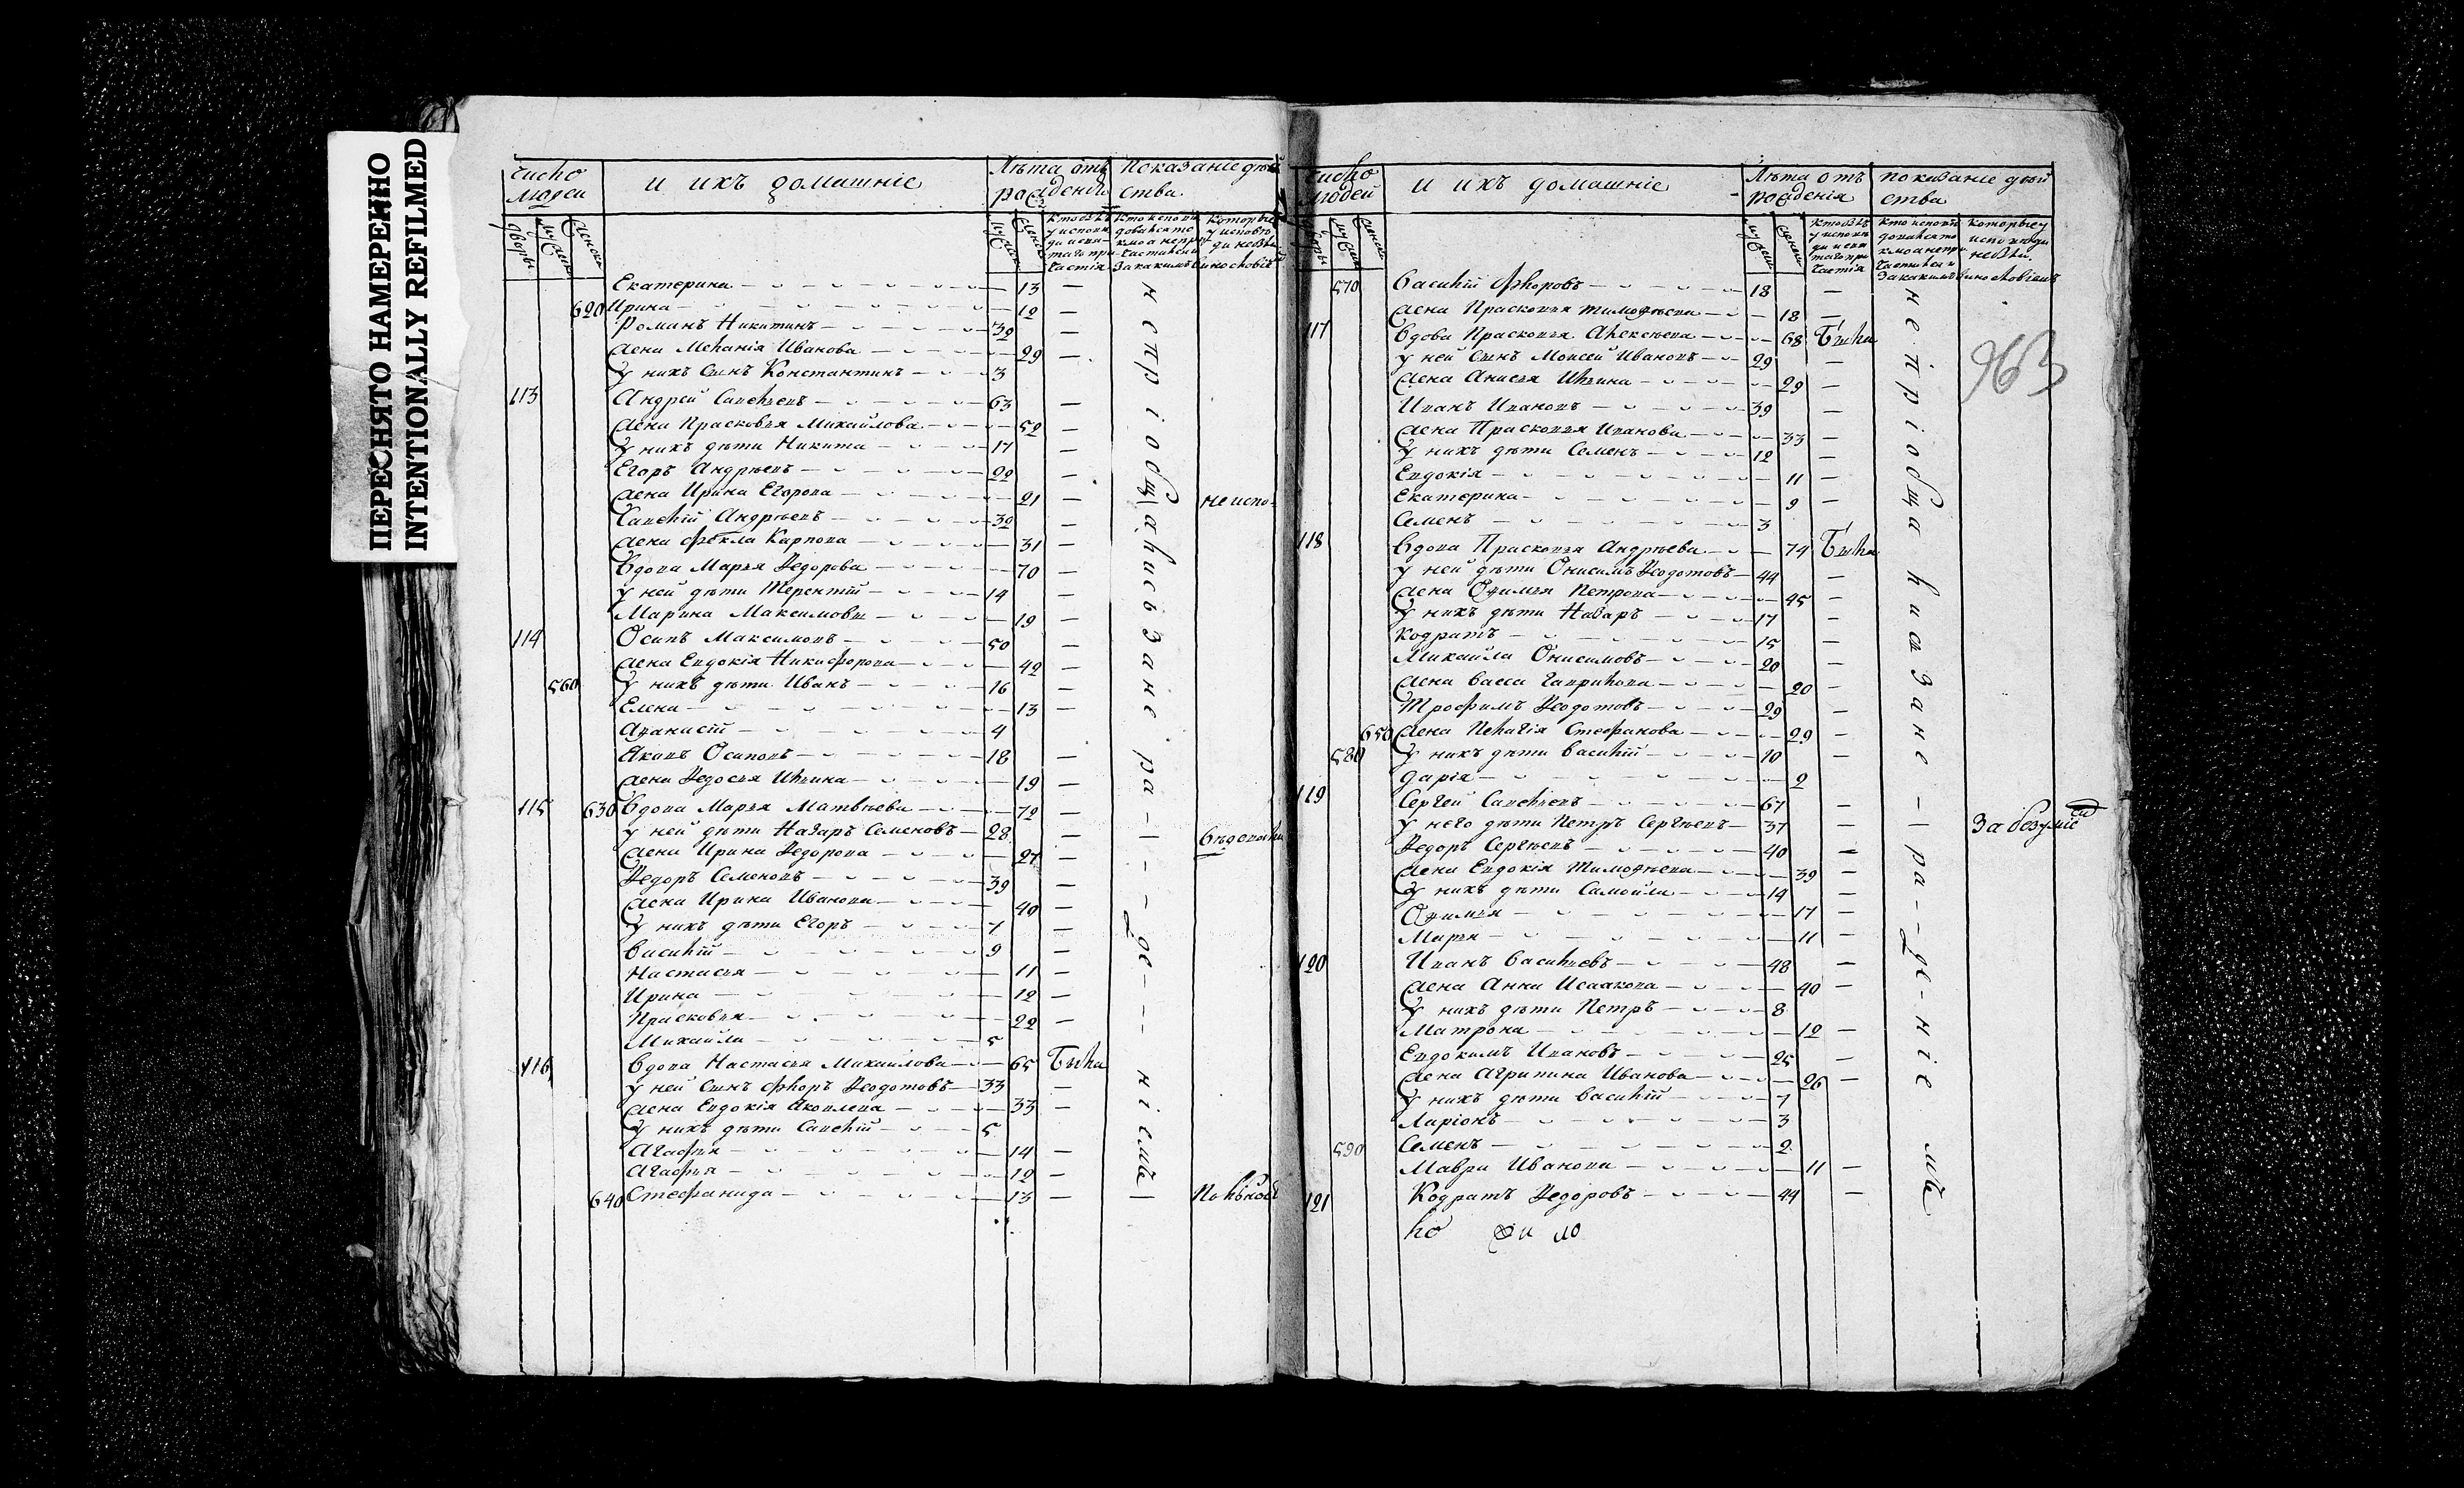 ПЕРЕСНЯТО НАМЕРЕННО
INTENTIONALLY REFILMED
число людей
и ихъ домашніе
Лѣта отъ рожденія
Показаніе дѣйства
дворы
мужеска
женска
Екатерина 13 —
620 Ирина 12 —
Романъ Никитинъ 32 —
жена Меланія Иванова 29 —
у нихъ сынъ Константинъ 3
113 Андрей Савельевъ 63 —
жена Прасковья Михайлова 52 —
у нихъ дѣти Никита 17 —
Егоръ Андрѣевъ 22 —
жена Ирина Егорова 21 — не испо-
Савелій Андрѣевъ 32 —
жена Фекла Карпова 31 —
Вдова Марья Ѳедорова 70 —
у ней дѣти Терентій 14 —
Марина Максимовы 19 —
114 Осипъ Максимовъ 50 —
жена Евдокія Никифорова 42 —
560 у нихъ дѣти Иванъ 16 —
Елена 13 —
Аѳанасій 4
Яковъ Осиповъ 18 —
жена Ѳедосья Ильина 19 —
115 630 Вдова Марья Матвѣева 72 —
у ней дѣти Назаръ Семеновъ 28 —
жена Ирина Ѳедорова 27 —
Ѳедоръ Семеновъ 39 —
жена Ирина Иванова 40 —
у нихъ дѣти Егоръ 7 —
Василій 9 —
Настасья 11 —
Ирина 12 —
Прасковья 22 —
Михайла 5
116 Вдова Настасья Михайлова 65 Была
у ней сынъ Флоръ Ѳеодотовъ 33 —
жена Евдокія Яковлева 33 —
у нихъ дѣти Савелій 5
Агафья 14 —
Агафья 12 —
640 Стефанида 13 —
не пріобщались за не ра - де - ніемъ
число людей
и ихъ домашніе
Лѣта отъ рожденія
показаніе дѣйства
дворы
мужеска
женска
963
570 Василій Флоровъ 18 —
жена Прасковья Тимоѳѣева 18 —
117 Вдова Прасковья Алексѣева 68 Была
у ней сынъ Моисей Ивановъ 29 —
жена Анисья Ильина 29 —
Иванъ Ивановъ 39 —
жена Прасковья Иванова 33 —
у нихъ дѣти Семенъ 12 —
Евдокія 11 —
Екатерина 9 —
Семенъ 3
118 Вдова Прасковья Андрѣева 74 Была
у ней дѣти Онисимъ Ѳеодотовъ 44 —
жена Офимья Петрова 45 —
у нихъ дѣти Назаръ 17 —
Кодратъ 15 —
Михайла Онисимовъ 20 —
жена Васса Гаврилова 20 —
Трофимъ Ѳеодотовъ 29 —
650 жена Пелагія Стефанова 29 —
580 у нихъ дѣти Василій 10 —
Дарія 2
119 Сергей Савельевъ 67 —
у него дѣти Петръ Сергѣевъ 37 — За безуміе
Ѳедоръ Сергѣевъ 40 —
жена Евдокія Тимоѳѣева 39 —
у нихъ дѣти Самойла 14 —
Офимья 17 —
Марья 11 —
120 Иванъ Васильевъ 48 —
жена Анна Исаакова 40 —
у нихъ дѣти Петръ 8
Матрона 12 —
Евдокимъ Ивановъ 25 —
жена Агрипина Иванова 26 —
у нихъ дѣти Василій 7
Ларіонъ 3
590 Семенъ 2
Мавра Иванова 11 —
121 Кодратъ Ѳедоровъ 44 —
не пріобщались за не - ра - де - ніемъ